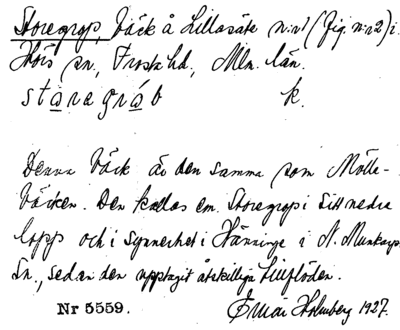 Storegrop, bäck å Lillasäte n:r 1 (Jfr. n:r 2) i
Hörs sn., Frosta hd, Mlm. län.
staragráb k.
Denna bäck är den samma som Mölle-
bäcken. Den kallas em. Storegrop i sitt nedre
lopp och i synnerhet i Hänninge i N. Munkarps
sn., sedan den upptagit åtskilliga tillflöden.
Nr 5559. Holmberg 1927.